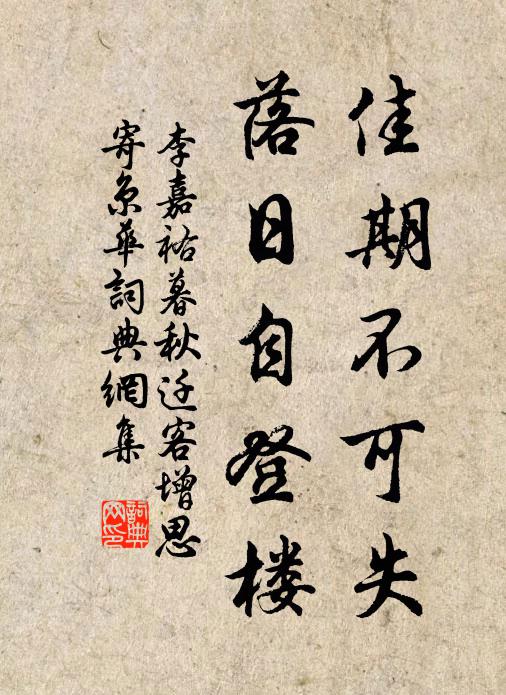 佳期不可失
落日自登楼
李嘉祐暮秋迁客增思
寄京华詞典網集
詞典網印